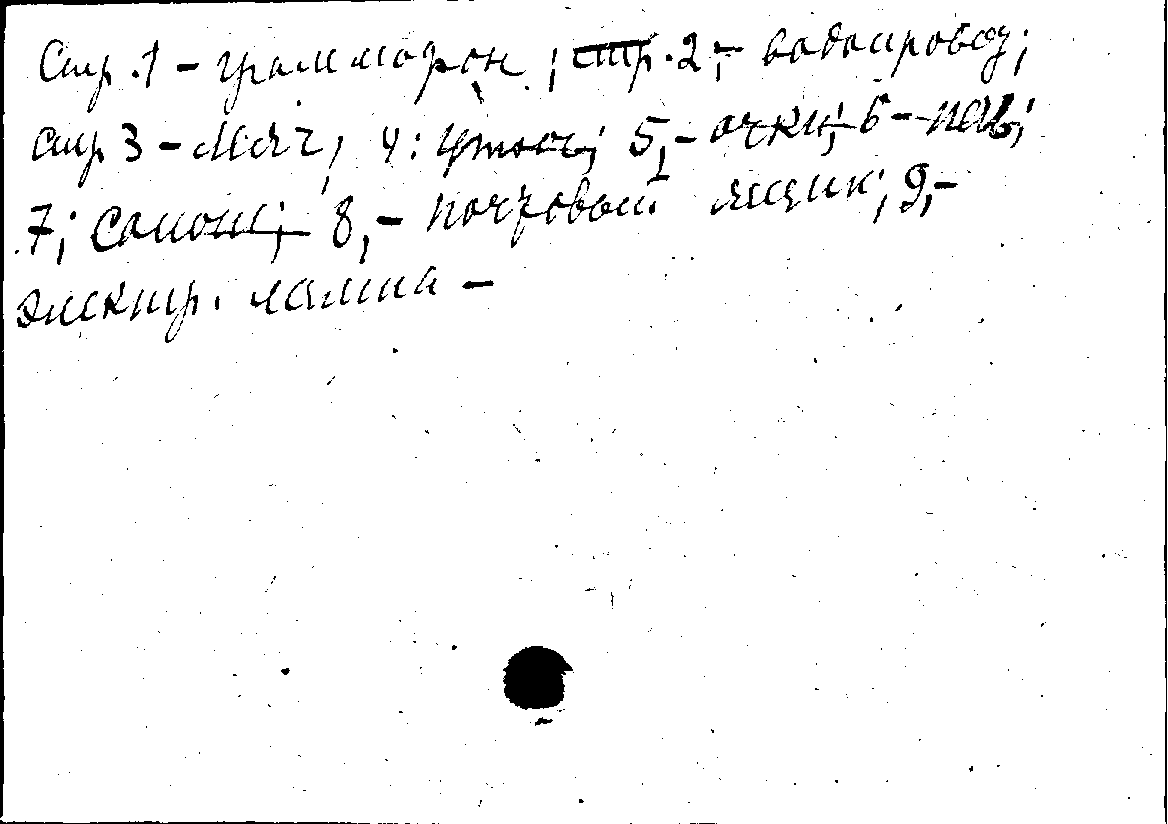 Стр. 1 - граммофон; стр. 2, - водопровод;
стр 3 - мяч, 4: утюг; 5, - очки; 6 -
7; сапоги; 8, - почтовый ящик; 9, -
электр. лампа -